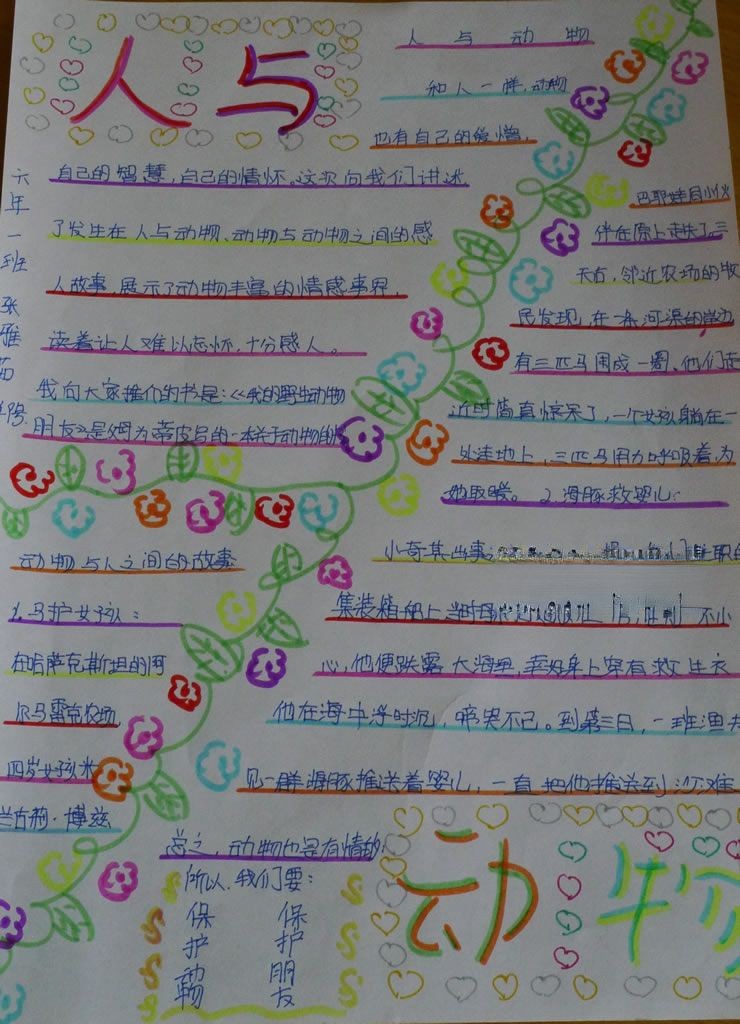 人与
六年一班张雅茹
人 与 动 物
和人一样，动物
也有自己的爱憎，
自己的智慧，自己的情怀。这次向我们讲述
了发生在人与动物、动物与动物之间的感
人故事，展示了动物丰富的情感事界，
读着让人难以忘怀，十分感人。
我向大家推介的书是：《我的野生动物
朋友》是姆为蒂皮写的一本关于动物的
动物与人之间的故事
1.马护女孩：
在哈萨克斯坦的阿
尔马雷克农场
四岁女孩米
兰古莉·博兹
巴耶娃同小伙
伴在原上走失了，三
天后，邻近农场的牧
民发现，在一条河渠的岸边
有三匹马围成一圈、他们走
近时简直惊呆了，一个女孩躺在一
处洼地上，三匹马用力呼吸着，为
她取暖。2.海豚救婴儿：
小奇其出事
集装箱船上，当时母 不小
心，他便跌露大海里，幸好身上穿有救生衣
他在海中浮时沉，啼哭不已。到第三日，一班渔夫
见一群海豚推送着婴儿，一直把他推送到沙滩
总之，动物也是有情的，
所以，我们要：
保护动物
保护朋友
动物